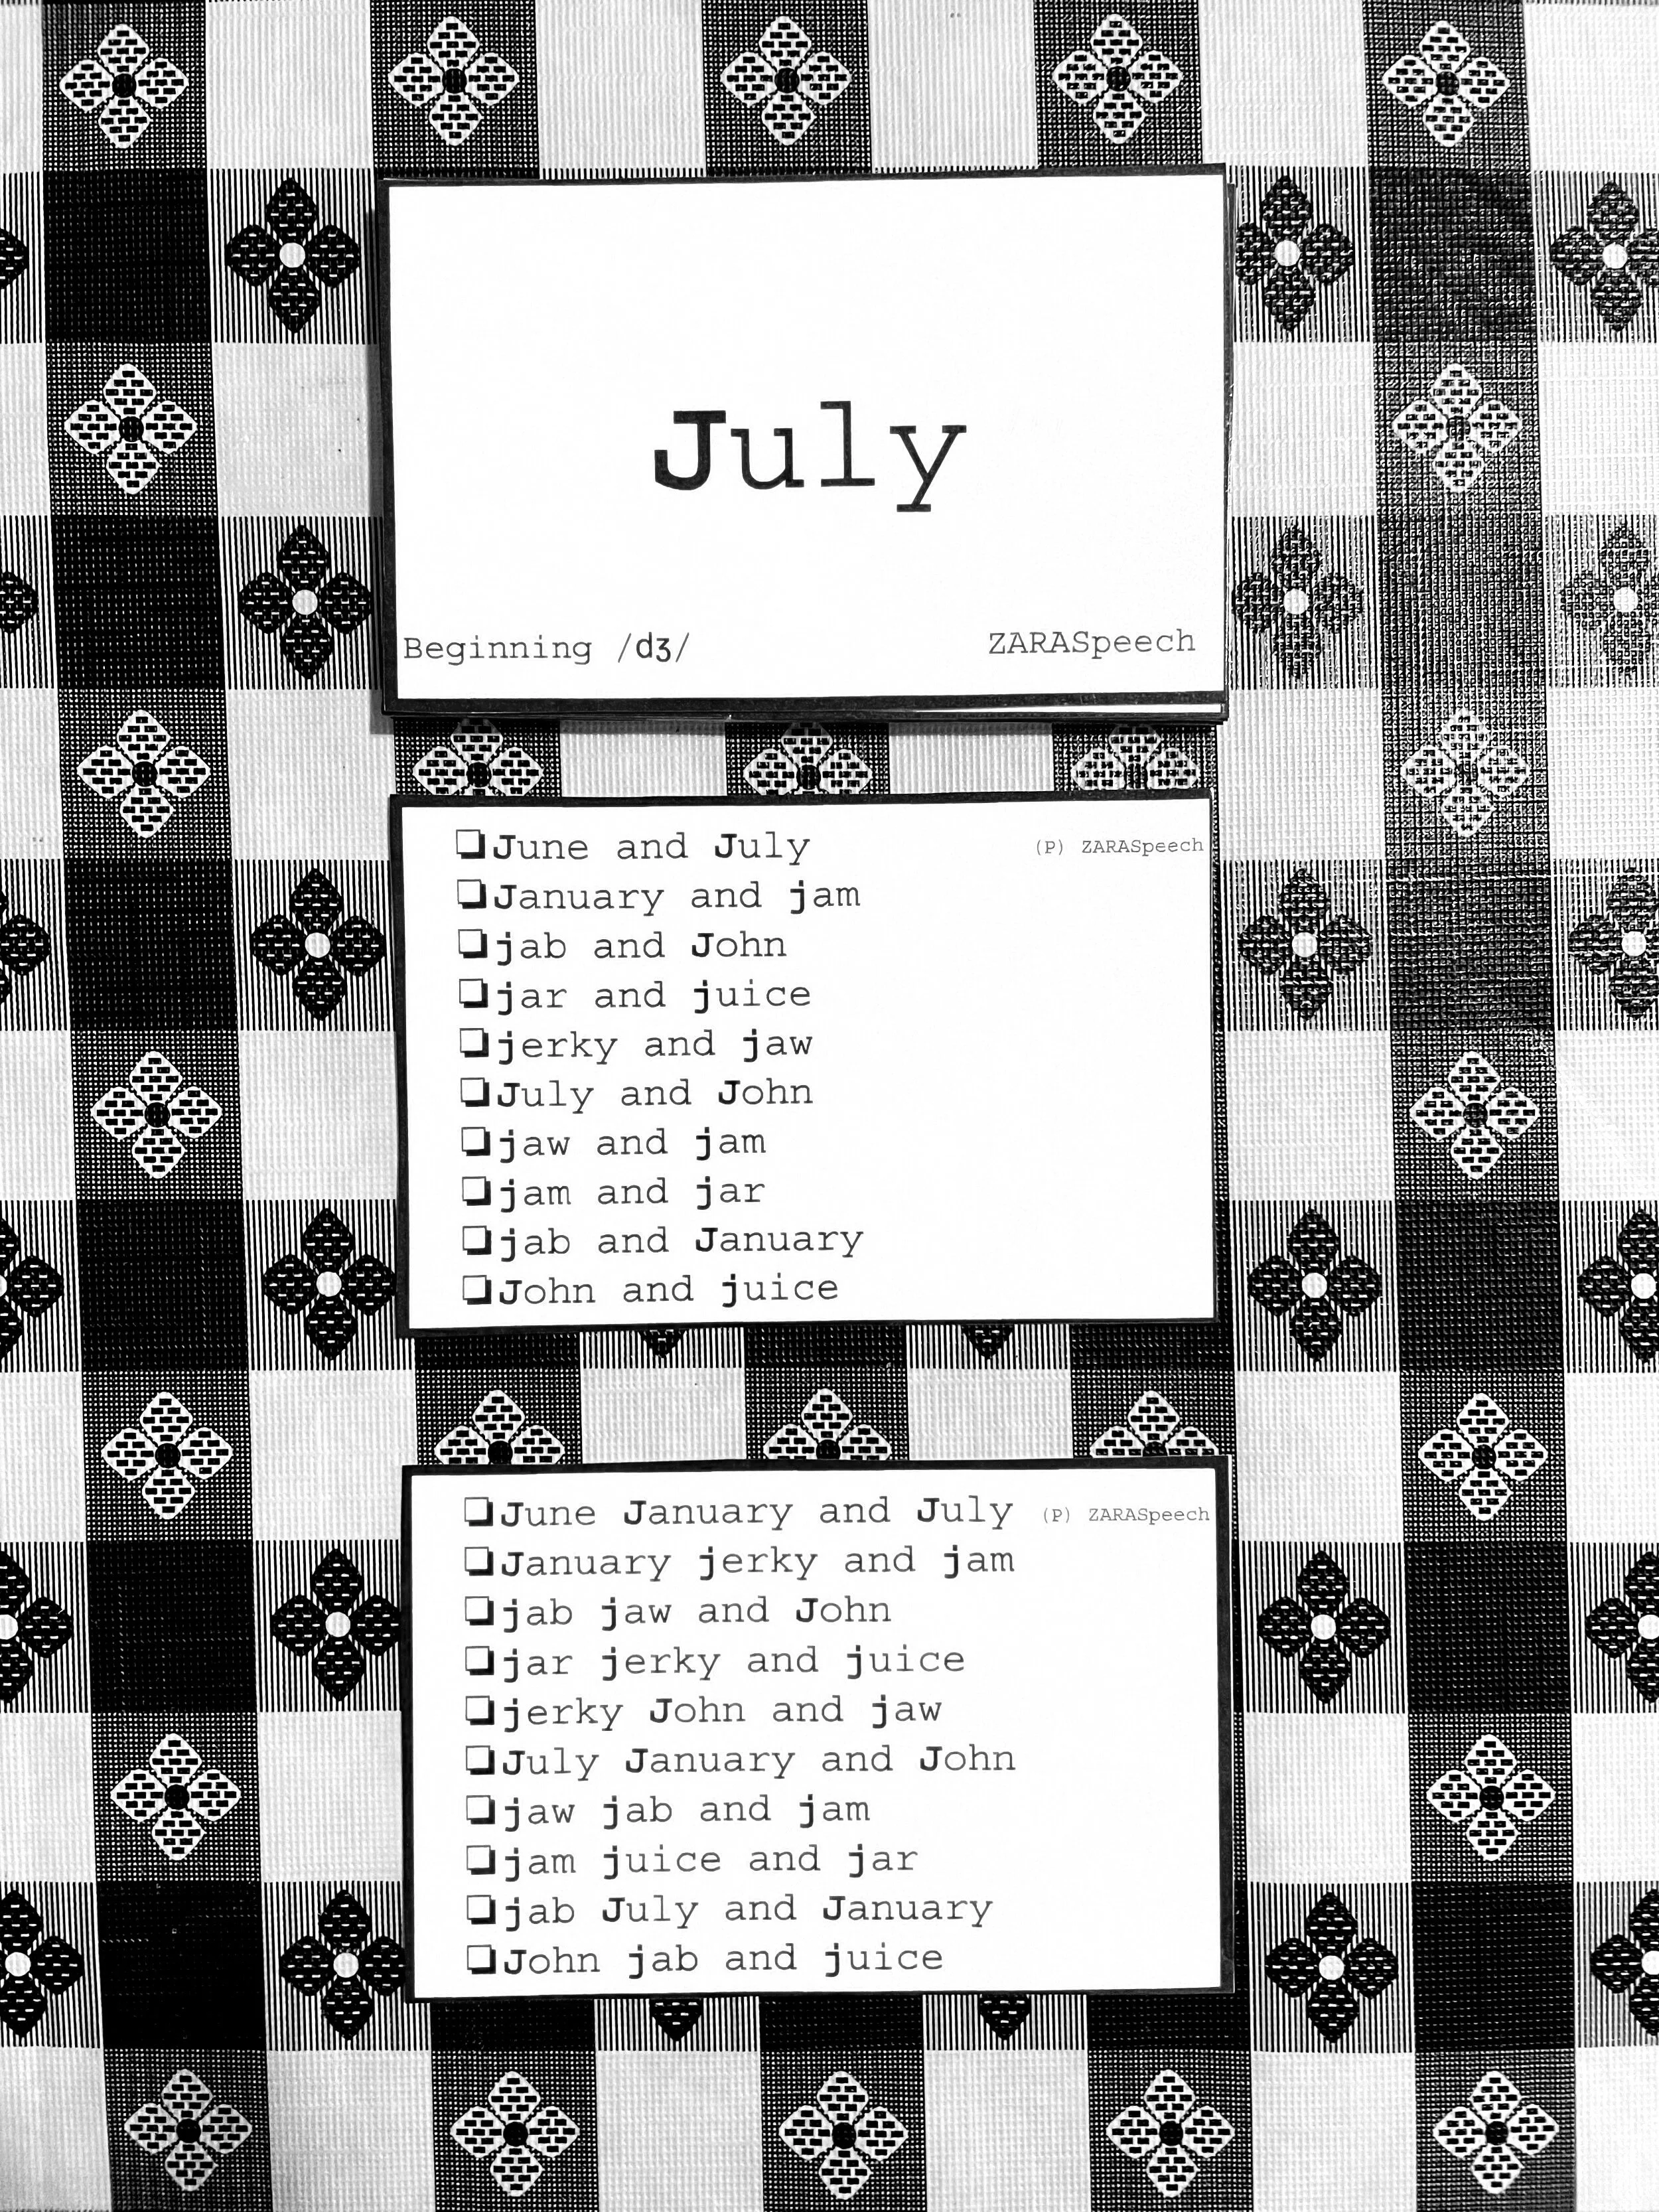 July
Beginning /dʒ/ ZARASpeech
❏June and July (P) ZARASpeech
❏January and jam
❏jab and John
❏jar and juice
❏jerky and jaw
❏July and John
❏jaw and jam
❏jam and jar
❏jab and January
❏John and juice
❏June January and July (P) ZARASpeech
❏January jerky and jam
❏jab jaw and John
❏jar jerky and juice
❏jerky John and jaw
❏July January and John
❏jaw jab and jam
❏jam juice and jar
❏jab July and January
❏John jab and juice